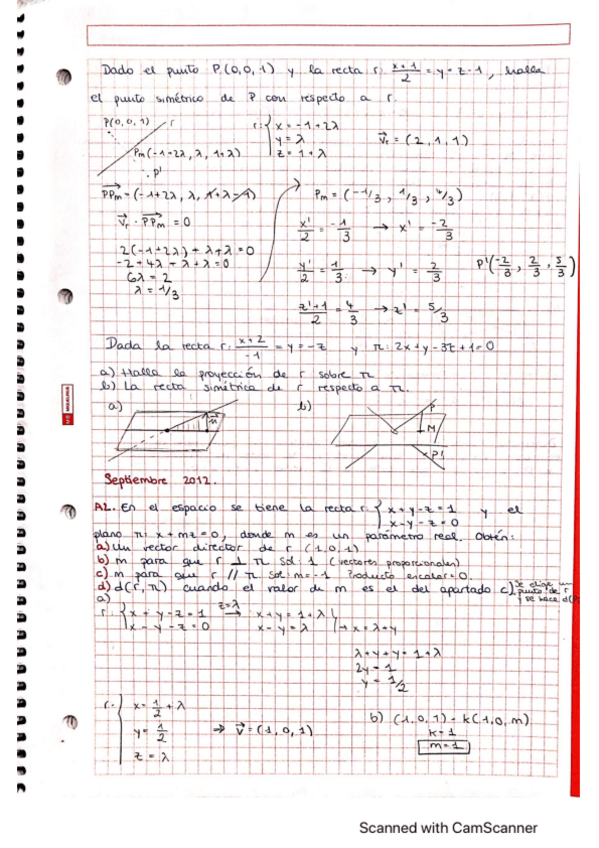 Dado el punto P(0,0,1) y la recta r: (x+1)/2 = y = z-1, halla
el punto simétrico de P con respecto a r.
P(0,0,1) r
Pm(-1+2λ, λ, 1+λ)
P'
r: { x = -1+2λ
y = λ
z = 1+λ
v⃗r = (2,1,1)
PPm = (-1+2λ, λ, 1+λ-1)
v⃗r · PPm = 0
2(-1+2λ) + λ + λ = 0
-2 + 4λ + λ + λ = 0
6λ = 2
λ = 1/3
Pm = (-1/3, 1/3, 4/3)
x'/2 = -1/3 → x' = -2/3
y'/2 = 1/3 → y' = 2/3
P'(-2/3, 2/3, 5/3)
z'+1/2 = 4/3 → z' = 5/3
Dada la recta r: (x+2)/-1 = y = -z y π: 2x+y-3z+1=0
a) Halla la proyección de r sobre π
b) La recta simétrica de r respecto a π.
a) n⃗
b) P M P'
MIQUELRIUS
Septiembre 2012.
A2. En el espacio se tiene la recta r: { x+y-z=1 y el
x-y-z=0
plano π: x+mz=0, donde m es un parámetro real. Obtén:
a) Un vector director de r (1,0,1)
b) m para que r ⊥ π Sol: 1 (vectores proporcionales)
c) m para que r // π Sol m=-1 Producto escalar=0.
d) d(r,π) cuando el valor de m es el del apartado c) Se elige un
punto de r
y se hace d(P,
a)
r: { x+y-z=1 z=λ → x+y=1+λ
x-y-z=0 x-y=λ } → x=λ+y
λ+y+y=1+λ
2y=1
y=1/2
r: { x = 1/2 + λ
y = 1/2 ⇒ v⃗=(1,0,1)
z = λ
b) (1,0,1) = k(1,0,m)
k=1
m=1
Scanned with CamScanner